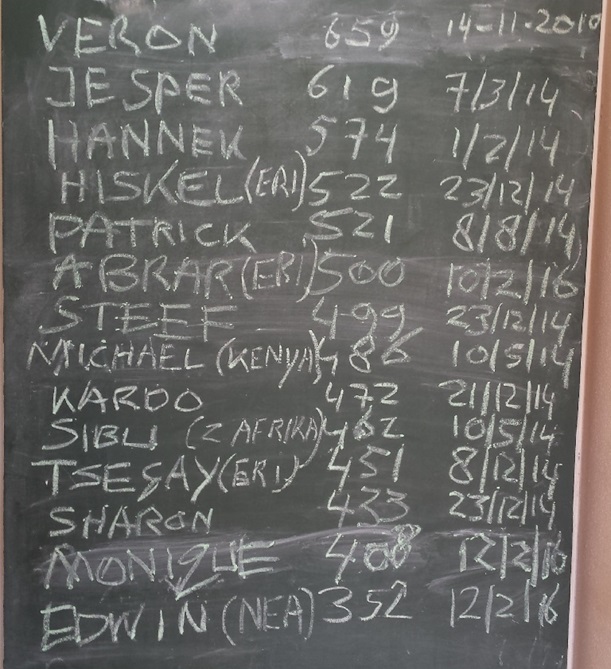 VERON 659 14-11-2010
JESPER 619 7/3/14
HANNEK 574 1/2/14
HISKEL (ERI) 522 23/12/14
PATRICK 521 8/8/14
ABRAR (ERI) 500 10/2/16
STEEF 499 23/12/14
MICHAEL (KENYA) 486 10/5/14
KARDO 472 21/12/14
SIBU (Z AFRIKA) 462 10/5/14
TSEGAY (ERI) 451 8/12/14
SHARON 433 23/12/14
MONIQUE 400 12/2/16
EDWIN (NEA) 352 12/2/16